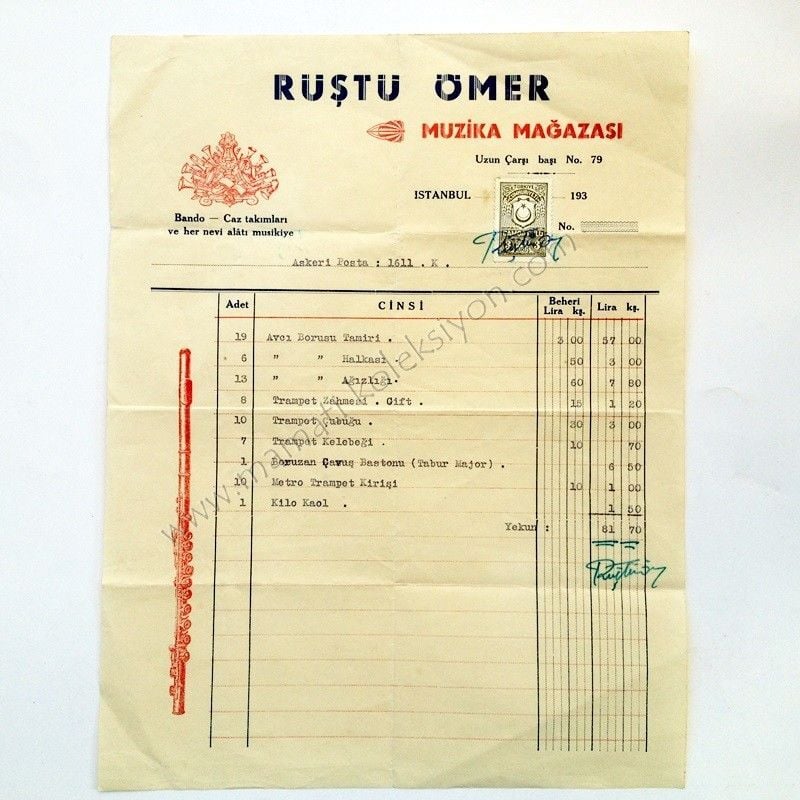 RÜŞTÜ ÖMER
MUZİKA MAĞAZASI
Uzun Çarşı başı No. 79
ISTANBUL 193
TÜRKİYE
No.
Bando — Caz takımları
ve her nevi alâtı musikiye
Askeri Posta : 1611 . K .
Adet CİNSİ Beheri Lira kş. Lira kş.
19 Avcı Borusu Tamiri . 3 00 57 00
6 " " Halkası . 50 3 00
13 " " Ağızlığı . 60 7 80
8 Trampet Zahmesi . Çift . 15 1 20
10 Trampet Çubuğu . 30 3 00
7 Trampet Kelebeği . 10 70
1 Boruzan Çavuş Bastonu (Tabur Major) . 6 50
10 Metro Trampet Kirişi 10 1 00
1 Kilo Kaol . 1 50
Yekun : 81 70
www.mamatikoleksiyon.com